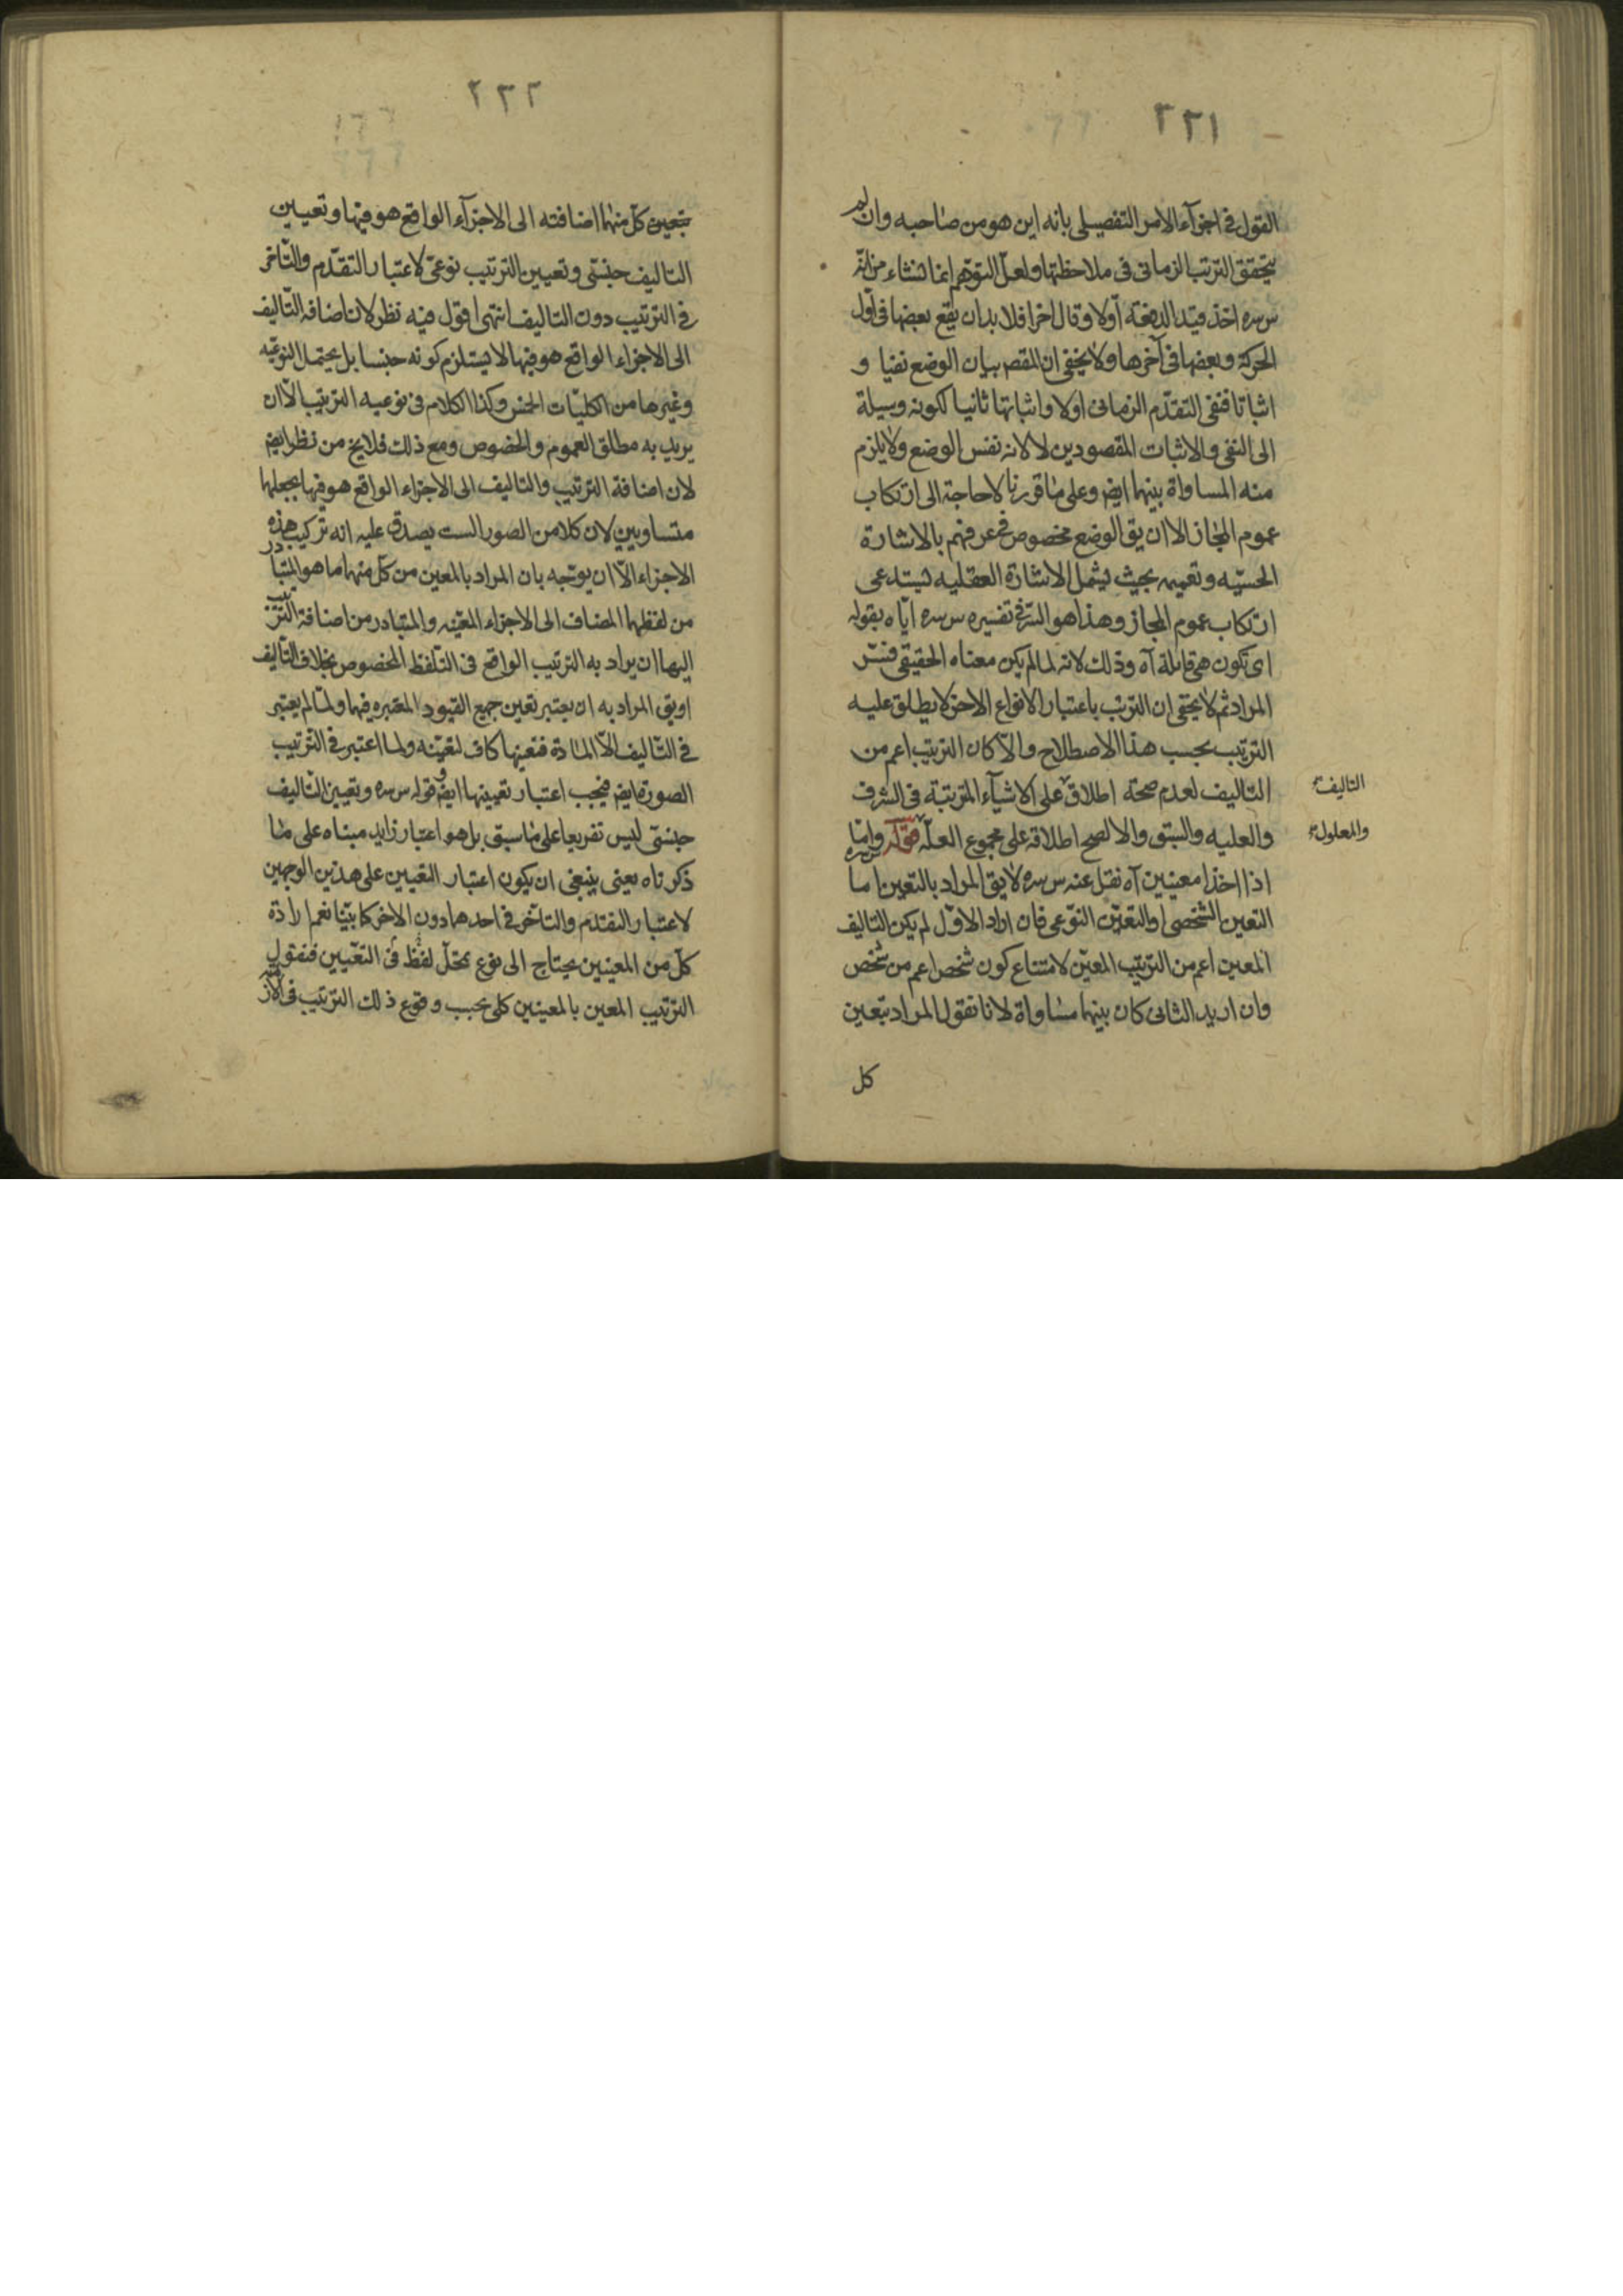 ٢٢١
القول فى اجزآء الامر التفصيلى بانه اين هو من صاحبه وان لم
يتحقق الترتب الزمانى فى ملاحظتها ولعلّ التوهم انما تنشاء من انّه
س سره اخذ قيد الدفعة اولا وقال اخرا فلا بد ان يقع بعضها فى اوّل
الحركة وبعضها فى آخرها ولا يخفى ان المقصم بيان الوضع نفيا و
اثباتا فنفى التقدّم الزمانى اولا واثباتها ثانيا لكونه وسيلة
الى النفى والاثبات المقصودين لا لانه نفس الوضع ولا يلزم
منه المساواة بينهما ايضم وعلى ما قررنا لا حاجة الى ارتكاب
عموم المجاز الا ان يق الوضع مخصوص فى عرفهم بالاشارة
الحسيّه وتعميمه بحيث يشمل الاشارة العقليه يستدعى
ارتكاب عموم المجاز وهذا هو السّر فى تفسيره س سره ايّاه بقوله
اى تكون هى قابلة آه وذلك لانه لما لم يكن معناه الحقيقى فسّر
المراد ثم لا يخفى ان الترتب باعتبار الانواع الاخر لا يطلق عليه
الترتيب بحسب هذا الاصطلاح والّا كان الترتيب اعم من
التاليف لعدم صحة اطلاق على الاشيآء المترتبة فى الشرف
التاليف
والعليه والسبق والا لصح اطلاقه على مجموع العلّة قوله وامّا
والمعلول
س سره
اذا اخذا معينين آه نقل عنه س سره لا يق المراد بالتعين اما
التعين الشخصى او التعيّن النوّعى فان اراد الاوّل لم يكن التاليف
المعين اعم من الترتيب المعيّن لامتناع كون شخص اعم من شخص
وان اريد الثانى كان بينهما مساواة لانا نقول المراد بتعين
كل
٢٢٢
بتعين كلّ منهما اضافته الى الاجزآء الواقع هو فيها وتعيين
التاليف جنسّى وتعيين الترتيب نوعىّ لاعتبار التقدّم والتّاخر
فى الترتيب دون التاليف انتهى اقول فيه نظر لان اضافه التّاليف
الى الاجزاء الواقع هو فيها لا يستلزم كونه جنسا بل يحتمل النوعّيه
وغيرها من الكليّات الخمس وكذا الكلام فى نوعيه الترتيب الّا ان
يريد به مطلق العموم والخصوص ومع ذلك فلا يخ من نظر ايضم
لان اضافة الترتيب والتاليف الى الاجزاء الواقع هو فيها يجعلها
متساويين لان كلا من الصور الست يصدق عليه انه تركيب هذه
الاجزاء الّا ان يوجّه بان المراد بالمعين من كلّ منهما ما هو المتبادر
من لفظهما المضاف الى الاجزاء المعّينه والمتبادر من اضافة الترتيب
اليها ان يراد به الترتيب الواقع فى التلفظ المخصوص بخلاف التّاليف
او يق المراد به ان يعتبر تعين جميع القيود المعتبره فيها ولمّا لم يعتبر
فى التّاليف الّا المادة فتعينها كاف لتعيّنه ولما اعتبر فى الترتيب
الصورة ايضم فيجب اعتبار تعيينها ايضم وقوله س سره وتعيين التّاليف
جنسّى ليس تفريعا على ما سبق بل هو اعتبار زايد مبناه على ما
ذكرناه يعنى ينبغى ان يكون اعتبار التعيين على هذين الوجهين
لاعتبار التقدم والتاخّر فى احدهما دون الاخر كما بيّنا نعم ارادة
كلّ من المعينين يحتاج الى نوع تمحّل لفظ فى التعّيين فنقول
الترتيب المعين بالمعينين كلى بحسب وقوع ذلك الترتيب فى الازمنة